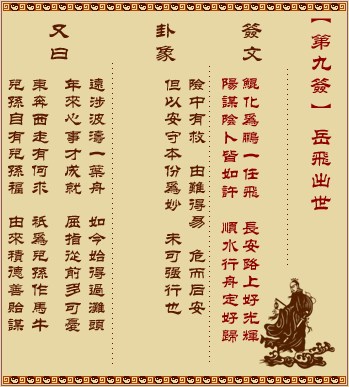 【第九簽】 岳飛出世
簽文
鯤化爲鵬一任飛 長安路上好光輝
陽謀陰卜皆如許 順水行舟定好歸
卦象
險中有救 由難得易 危而后安
但以安守本份爲妙 未可强行也
又曰
遠涉波濤一葉舟 如今始得過灘頭
年來心事才成就 屈指從前多可憂
東奔西走有何求 祇爲兒孫作馬牛
兒孫自有兒孫福 由來積德善貽謀